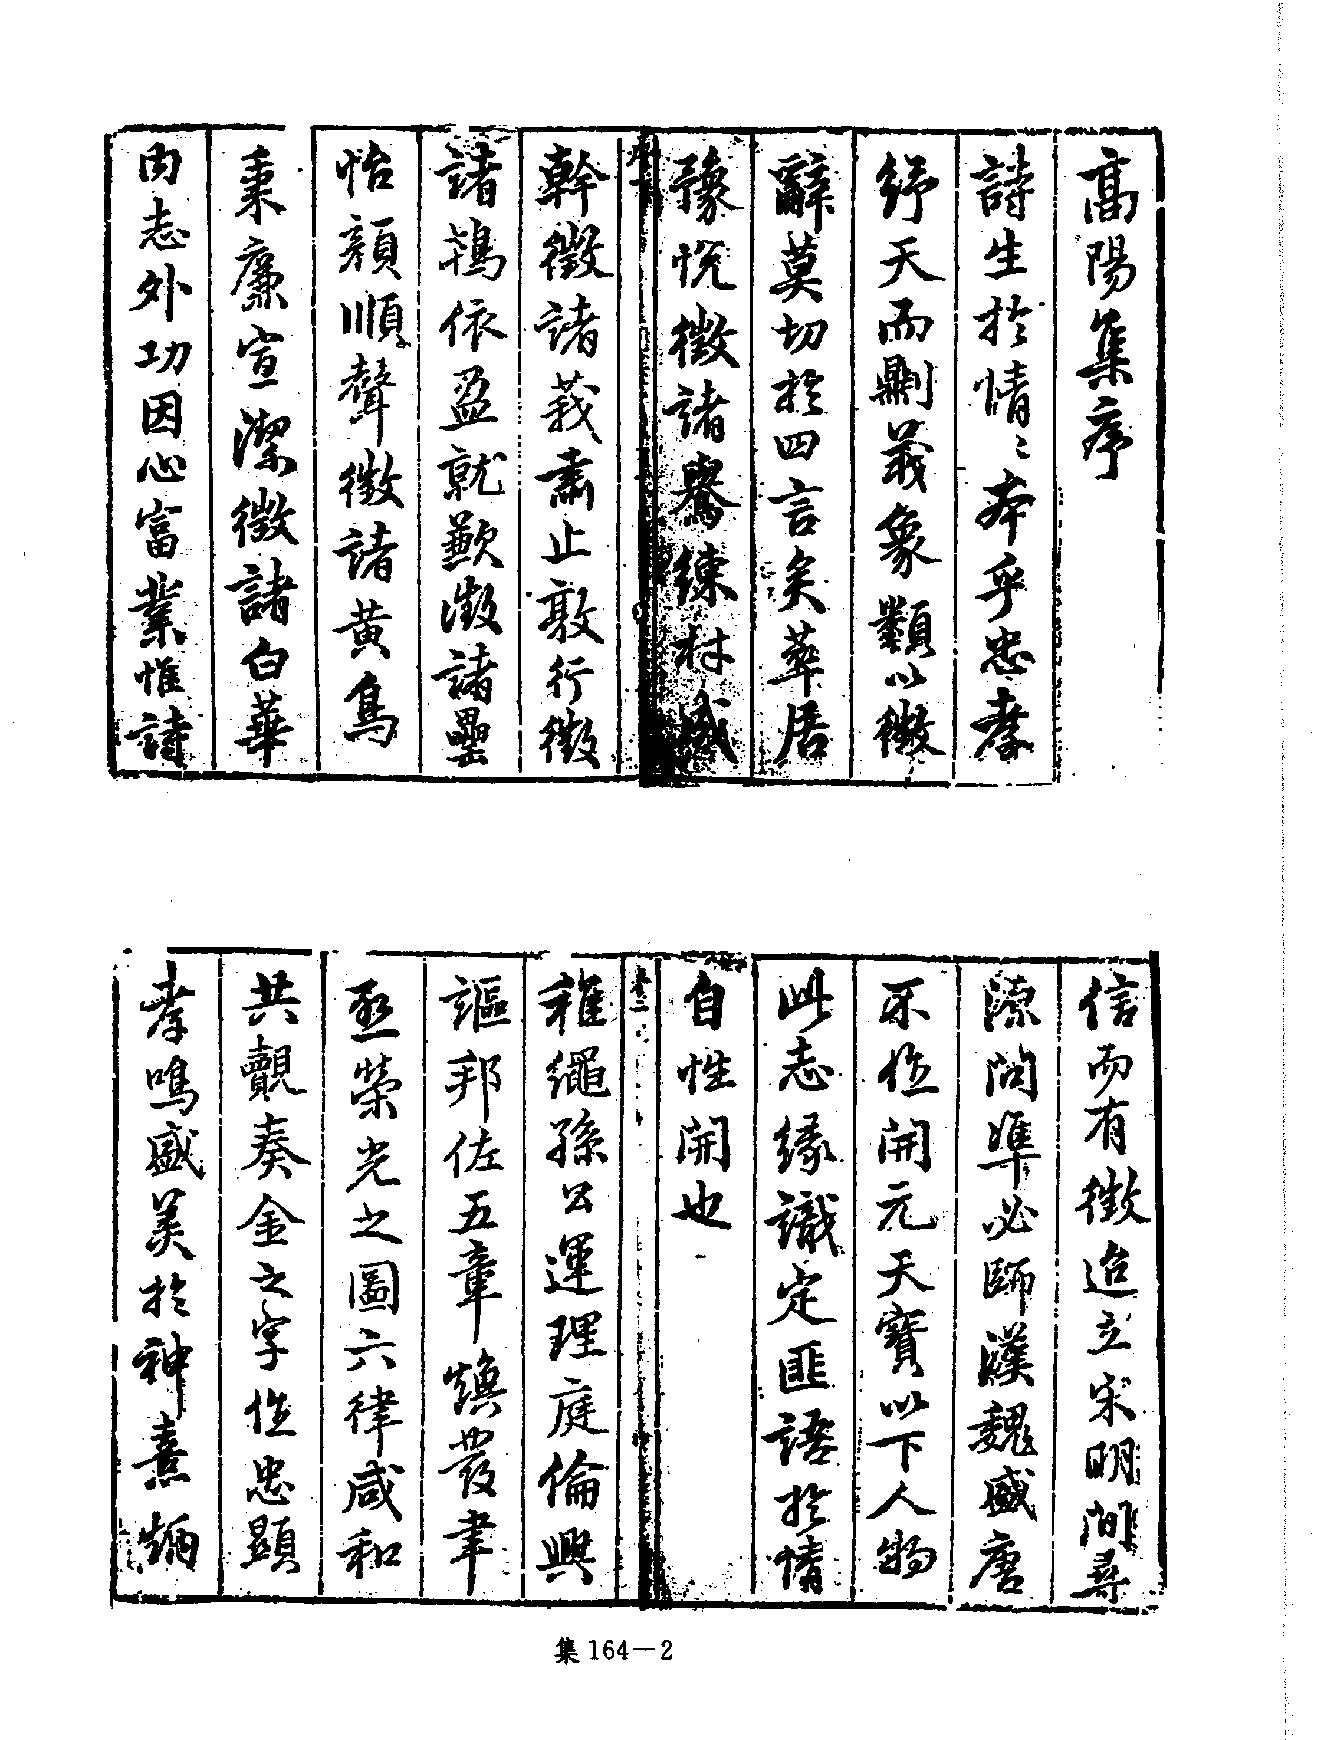 高陽集序
詩生於情〻本乎忠孝
紓天而剛義象類以徵
辭莫切於四言矣萃居
豫悅徵諸鸒練材盛
幹徵諸莪肅止敦行徵
諸鴇依盈就歉徵諸罍
怡顏順聲徵諸黃鳥
秉廉宣潔徵諸白華
內志外功因心富業惟詩
信而有徵迨立宋明間尋
源闊準必師漢魏盛唐
不作開元天寶以下人物
此志緣識定匪語於情
自性開也
稚繩孫公運理庭倫興
謳邦佐五章煥發聿
丞榮光之圖六律咸和
共覿奏金之字作忠顯
孝鳴盛美於神熹炳
集 164－2